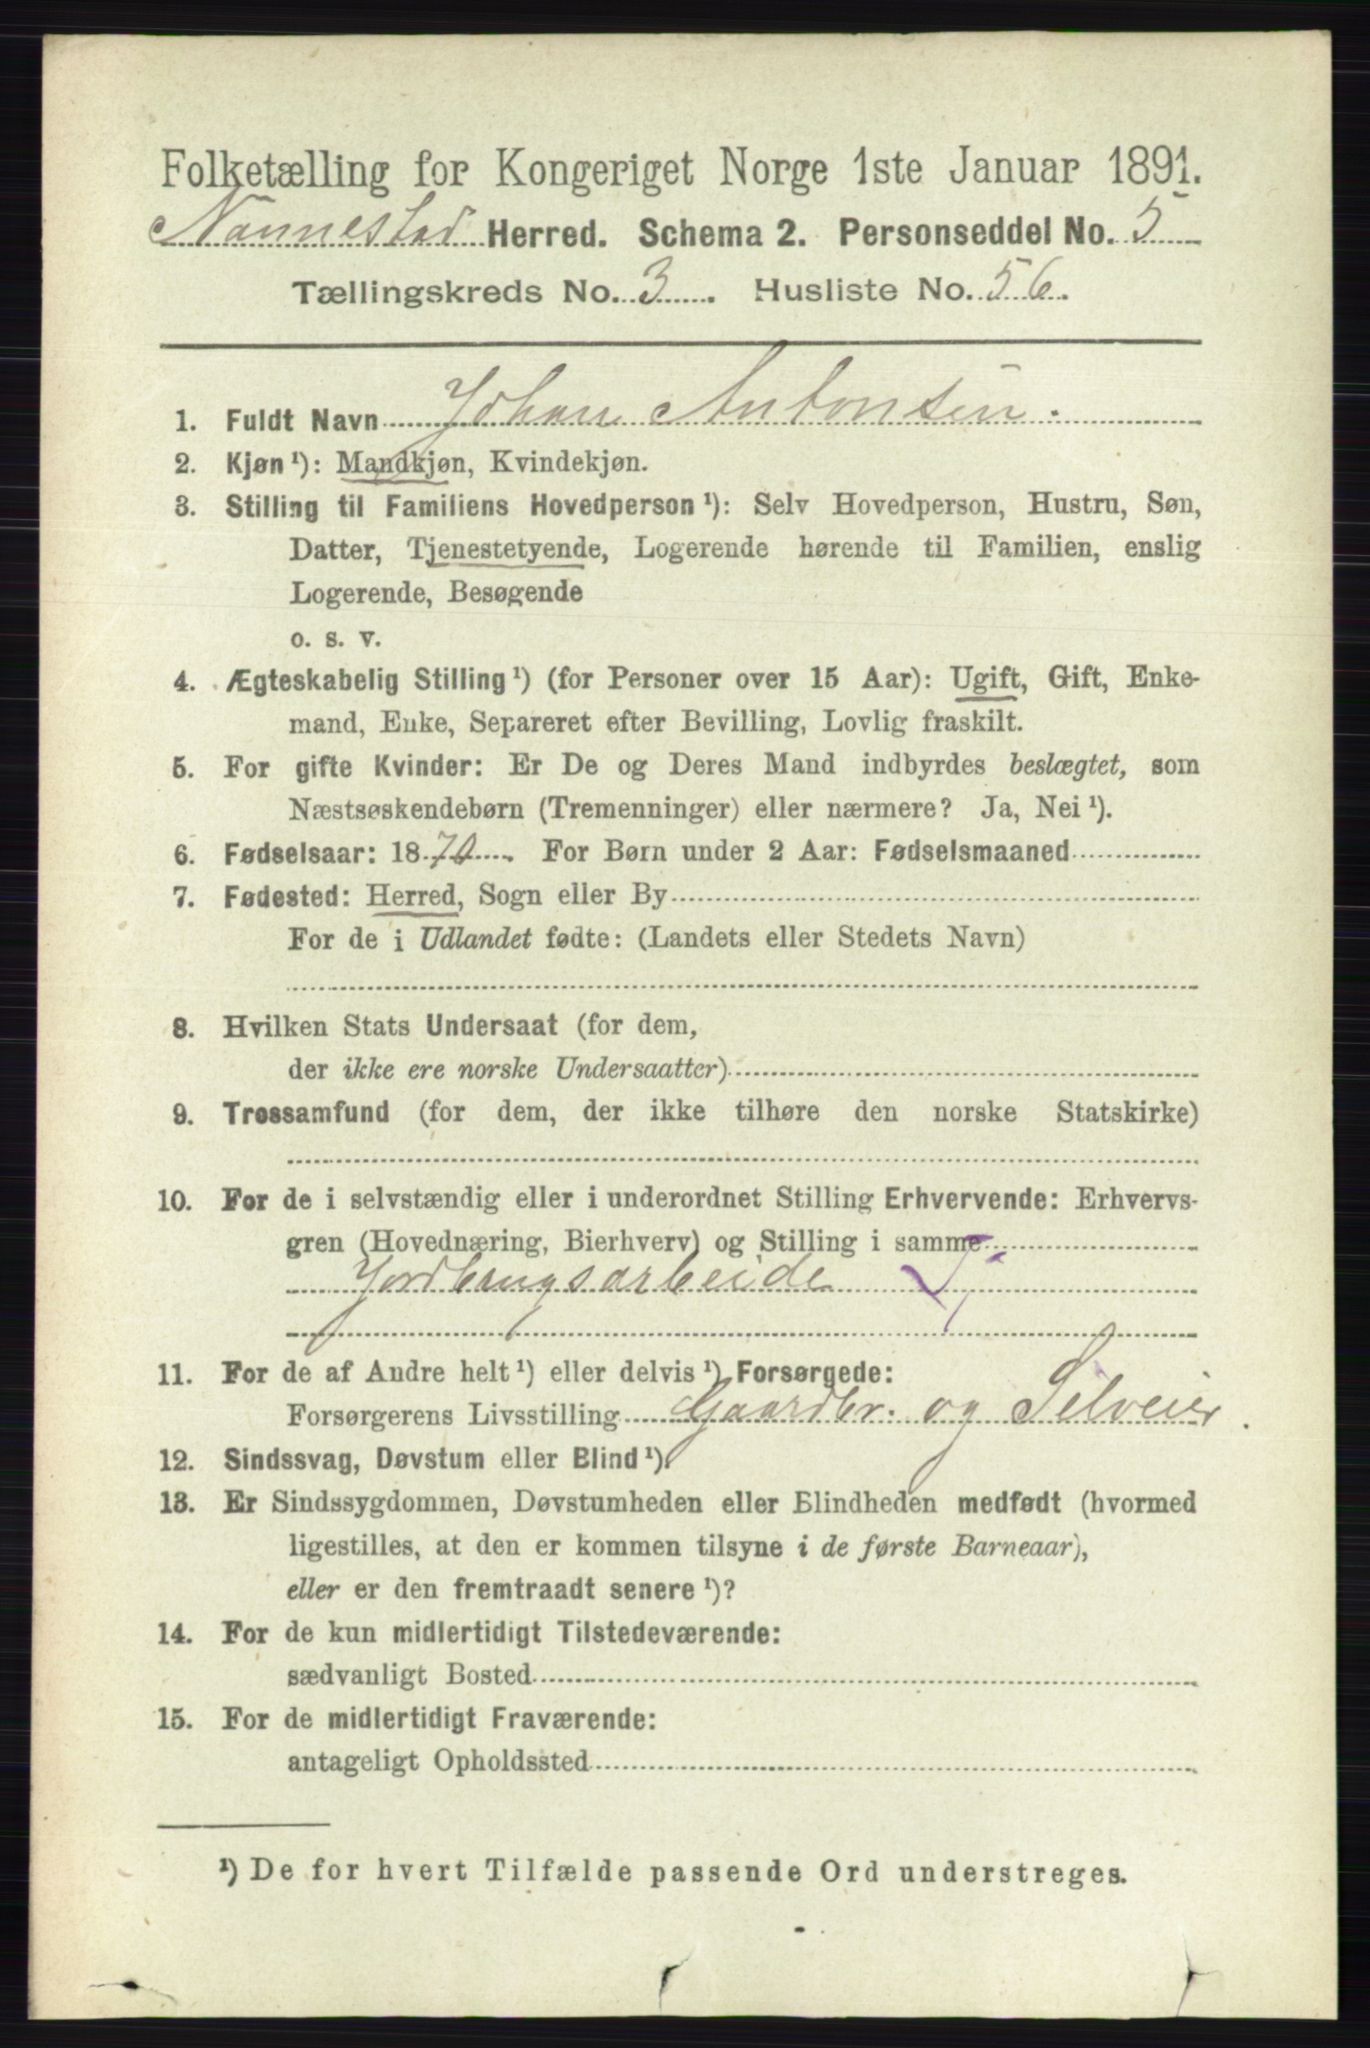 Folketælling for Kongeriget Norge 1ste Januar 1891.
Nannestad Herred. Schema 2. Personseddel No. 5
Tællingskreds No. 3. Husliste No. 56.
1. Fuldt Navn Johan Antonsen.
2. Kjøn¹): Mandkjøn, Kvindekjøn.
3. Stilling til Familiens Hovedperson¹): Selv Hovedperson, Hustru, Søn,
Datter, Tjenestetyende, Logerende hørende til Familien, enslig
Logerende, Besøgende
o. s. v.
4. Ægteskabelig Stilling¹) (for Personer over 15 Aar): Ugift, Gift, Enke-
mand, Enke, Separeret efter Bevilling, Lovlig fraskilt.
5. For gifte Kvinder: Er De og Deres Mand indbyrdes beslægtet, som
Næstsøskendebørn (Tremenninger) eller nærmere? Ja, Nei¹).
6. Fødselsaar: 1870. For Børn under 2 Aar: Fødselsmaaned
7. Fødested: Herred, Sogn eller By
For de i Udlandet fødte: (Landets eller Stedets Navn)
8. Hvilken Stats Undersaat (for dem,
der ikke ere norske Undersaatter)
9. Trossamfund (for dem, der ikke tilhøre den norske Statskirke)
10. For de i selvstændig eller i underordnet Stilling Erhvervende: Erhvervs-
gren (Hovednæring, Bierhverv) og Stilling i samme
Jordbrugsarbeide
11. For de af Andre helt¹) eller delvis¹) Forsørgede:
Forsørgerens Livsstilling Gaardbr. og Selveier.
12. Sindssvag, Døvstum eller Blind¹).
13. Er Sindssygdommen, Døvstumheden eller Blindheden medfødt (hvormed
ligestilles, at den er kommen tilsyne i de første Barneaar),
eller er den fremtraadt senere¹)?
14. For de kun midlertidigt Tilstedeværende:
sædvanligt Bosted
15. For de midlertidigt Fraværende:
antageligt Opholdssted
¹) De for hvert Tilfælde passende Ord understreges.